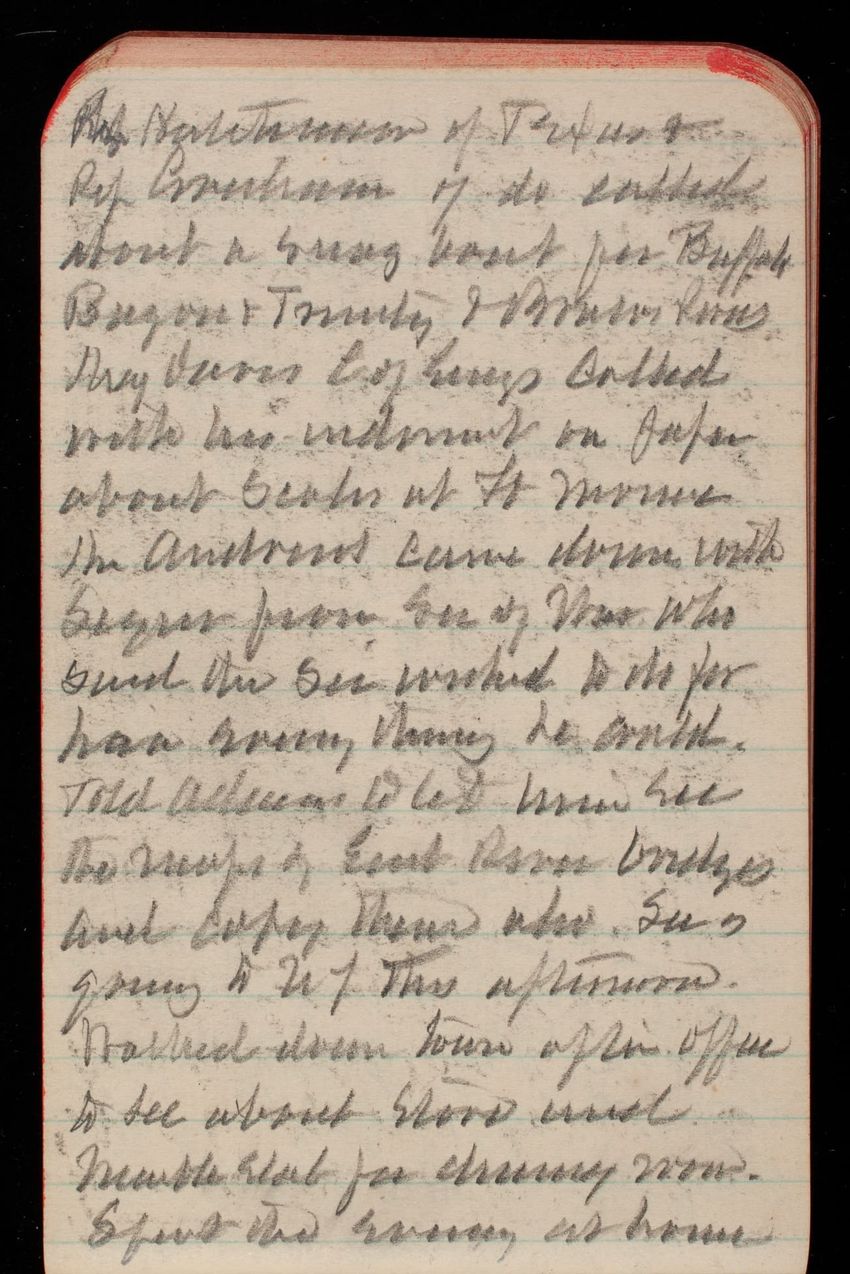 Rep Hutcheson of Texas &
Rep Crouchum of do called
about a snag boat for Buffalo
Bayou & Trinity & Brazos Rivers
Davis C of Engs Called
with his indorsmt on paper
about Scales at Ft Monroe
Mr Andrews came down with
from Sec of War who
said the Sec wished to do for
him every thing he could.
Told Adams to let him see
the maps of East River bridges
and copy them also. Sec is
going to NY this afternoon.
Walked down town after office
to see about Stove and
Marble Slab for dining room.
Spent the evening at home